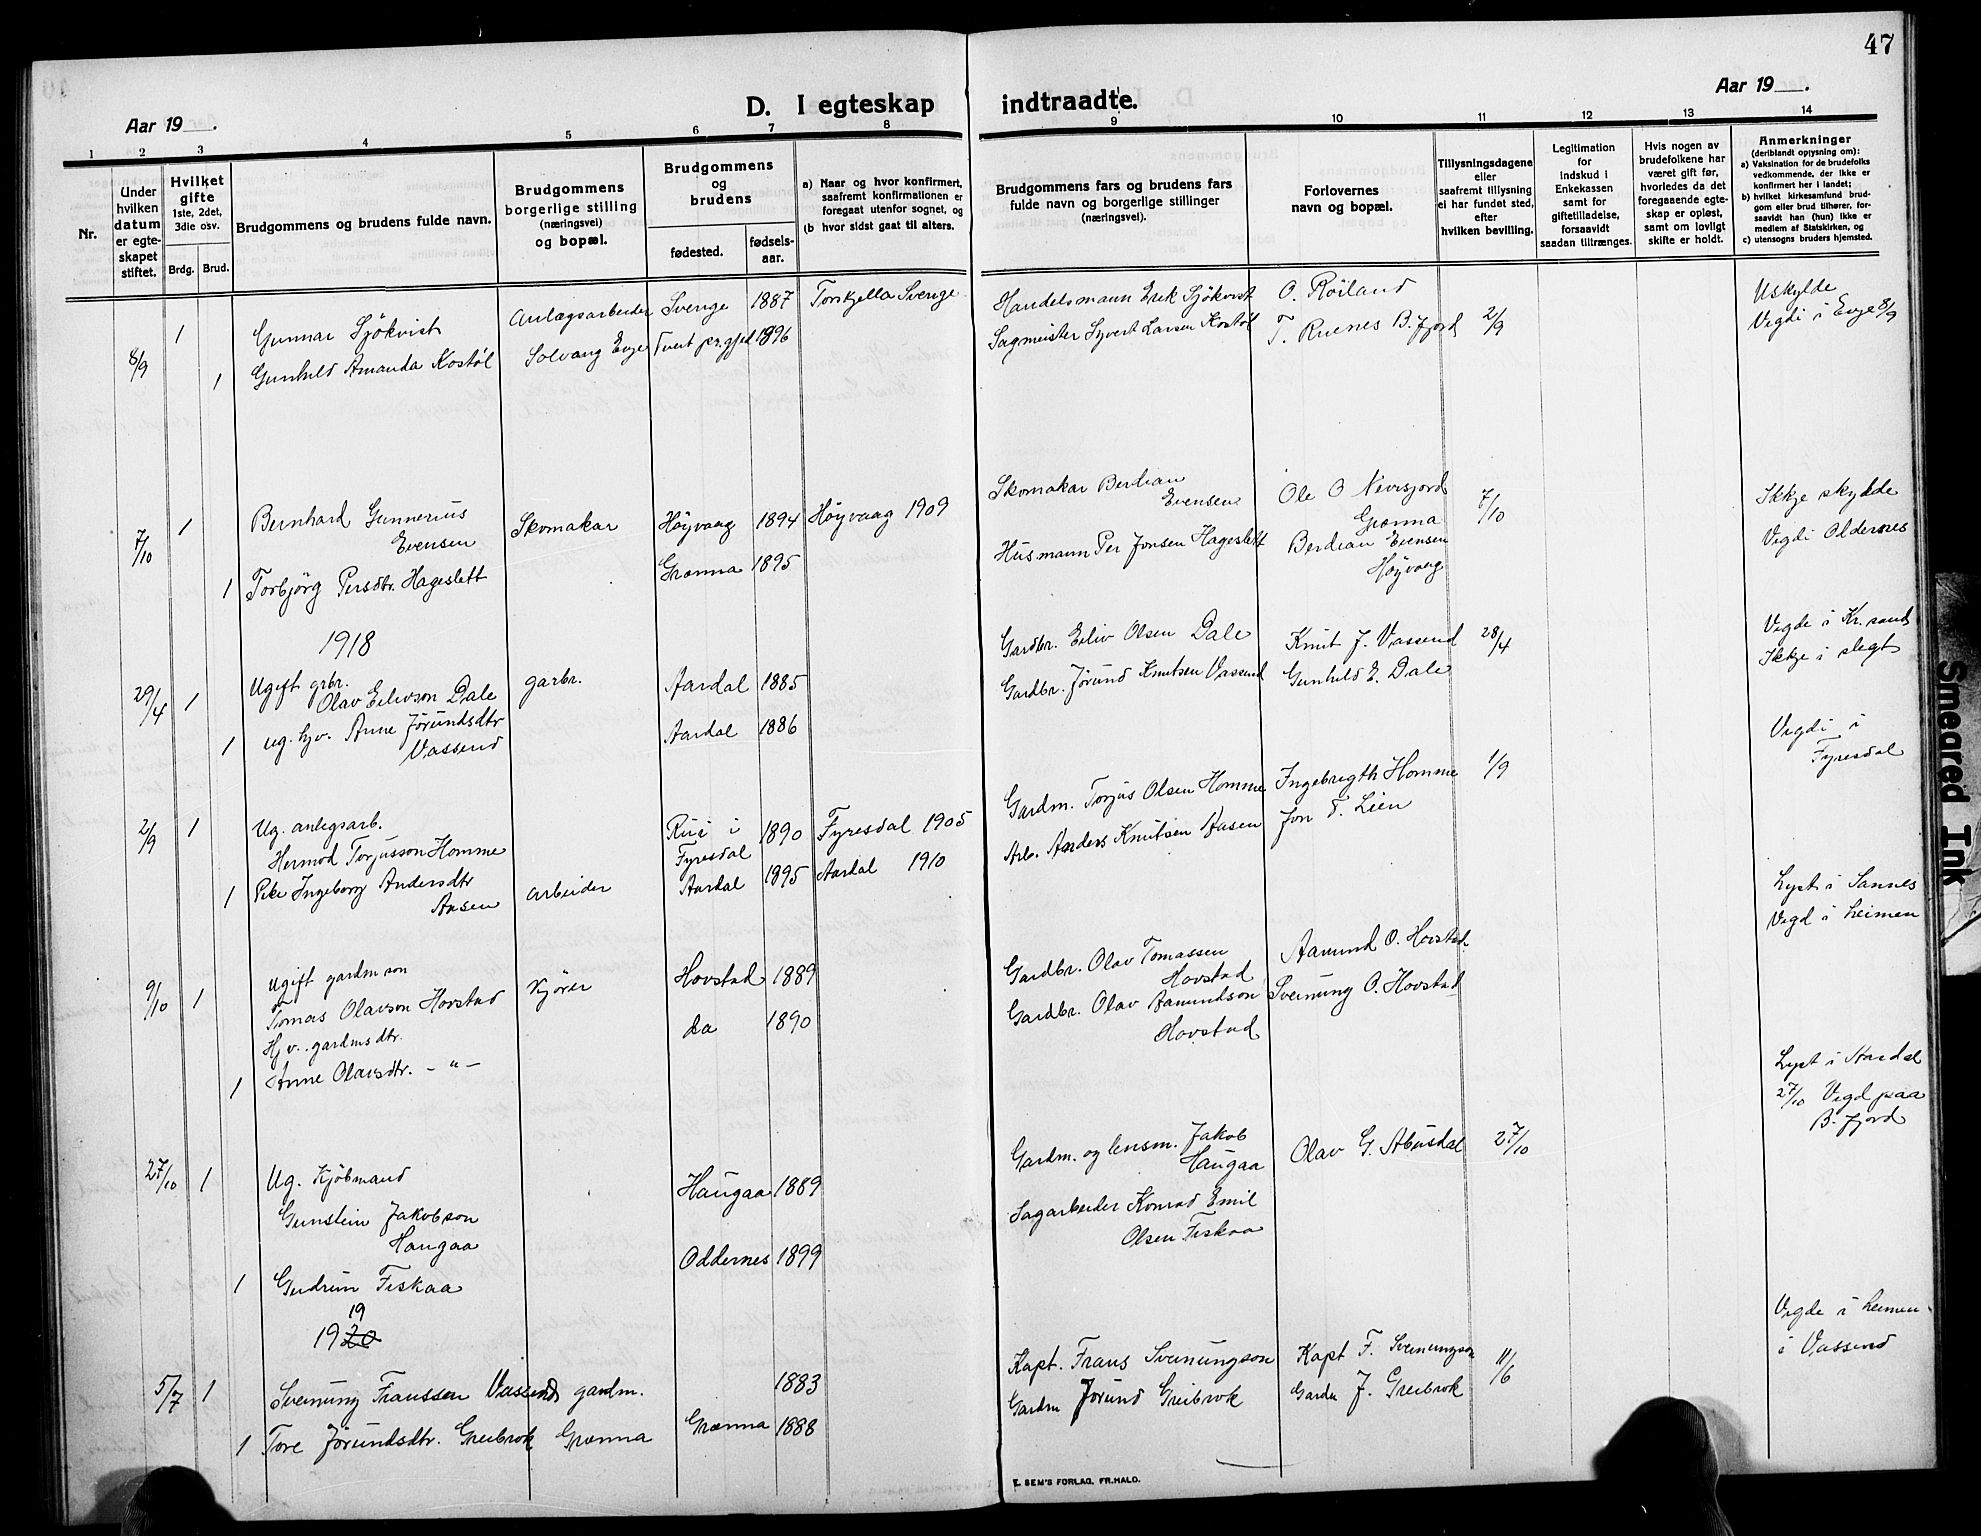 47
Aar 19 .
D. I egteskap
indtraadte.
Aar 19 .
1 2 3 4 5 6 7 8
9 10 11 12 13 14
Nr.
Under hvilken datum er egteskapet stiftet.
Hvilket gifte 1ste, 2det, 3die osv.
Brdg. Brud.
Brudgommens og brudens fulde navn.
Brudgommens borgerlige stilling (næringsvei) og bopæl.
Brudgommens og brudens
fødested.
fødselsaar.
a) Naar og hvor konfirmert, saafremt konfirmationen er foregaat utenfor sognet, og
(b hvor sidst gaat til alters.
Brudgommens fars og brudens fars fulde navn og borgerlige stillinger (næringsvei).
Forlovernes navn og bopæl.
Tillysningsdagene eller saafremt tillysning ei har fundet sted, efter hvilken bevilling.
Legitimation for indskud i Enkekassen samt for giftetilladelse, forsaavidt saadan tiltrænges.
Hvis nogen av brudefolkene har været gift før, hvorledes da det foregaaende egteskap er opløst, samt om lovligt skifte er holdt.
Anmerkninger
(deriblandt opjysning om):
a) Vaksination for de brudefolks vedkommende, der ikke er konfirmert her i landet;
b) hvilket kirkesamfund brudgom eller brud tilhører, forsaavidt han (hun) ikke er medlem af Statskirken, og
c) utensogns bruders hjemsted.
8/9 1 Gunnar Sjökvist Anlægsarbeider Sverige 1887 Torskjella Sverige
Handelsmann Erik Sjökvist O. Röiland 2/9 Uskylde
1 Gunhild Amanda Kostøl Solvang Evje Tveit pr.gjeld 1896
Sagmeister Syvert Larsen Kostøl T. Ruenes B. fjord Vigdi i Evje 8/9
7/10 1 Bernhard Gunnerius Evensen Skomakar Höyvaag 1894 Höyvaag 1909
Skomakar Berdian Evensen Ole O Nevesjord Grænna 7/10 Ikkje skylde
1 Torbjörg Persdtr. Hageslett Grænna 1895
Husmann Per Jonsen Hageslett Berdian Evensen Höyvaag Vigdi Oddernes
1918
29/4 1 Ugift grbr. Olav Eilivson Dale garbr. Aardal 1885
Gardbr. Eiliv Olsen Dale Knut J. Vassend 28/4 Vigde i Kr.sand
1 ug. hjv. Anne Jørundsdtr Vassend Aardal 1886
Gardbr. Jørund Knutsen Vassend Gunhild E. Dale Ikkje i slegt
2/9 1 Ug. anlegsarb. Hermod Torjusson Homme Rui i Fyresdal 1890 Fyresdal 1905
Gardm. Torjus Olsen Homme Ingebrigth Homme 1/9 Vigdi i Fyresdal
1 Pike Ingeborg Andersdtr Aasen arbeider Aardal 1895 Aardal 1910
Arb. Anders Knutsen Aasen Jon T. Lien
9/10 1 Ugift gardm son Tomas Olavson Hovstad Kjörer Hovstad 1889
Gardbr. Olav Tomassen Hovstad Aamund O. Hovstad Lyst i Sannes
Hjv. gardmsdtr. 1 Anne Olavsdtr. – " – da 1890
Gardbr. Olav Aamundson Hovstad Sveinung O. Hovstad Vigd i heimen
27/10 1 Ug. Kjöbmand Gunstein Jakobson Haugaa Haugaa 1889
Gardm. og lensm. Jakob Haugaa Olav G. Abusdal 27/10 Lyst i Aardal 27/10 Vigd paa B. fjord
1 Gudrun Fiskaa Oddernes 1899
Sagarbeider Konrad Emil Olsen Fiskaa
19
1920
5/7 1 Sveinung Franssen Vassend gardm. 1883
Kapt. Frans Sveinungson Kapt F. Sveinungson 11/6 Vigde i heimen i Vassend
1 Tore Jørundsdtr. Greibrok Grænna Grænna 1888
Gardm Jørund Greibrok Gardm J. Greibrok
E. SEM'S FORLAG, FR.HALD.
Smeared Ink